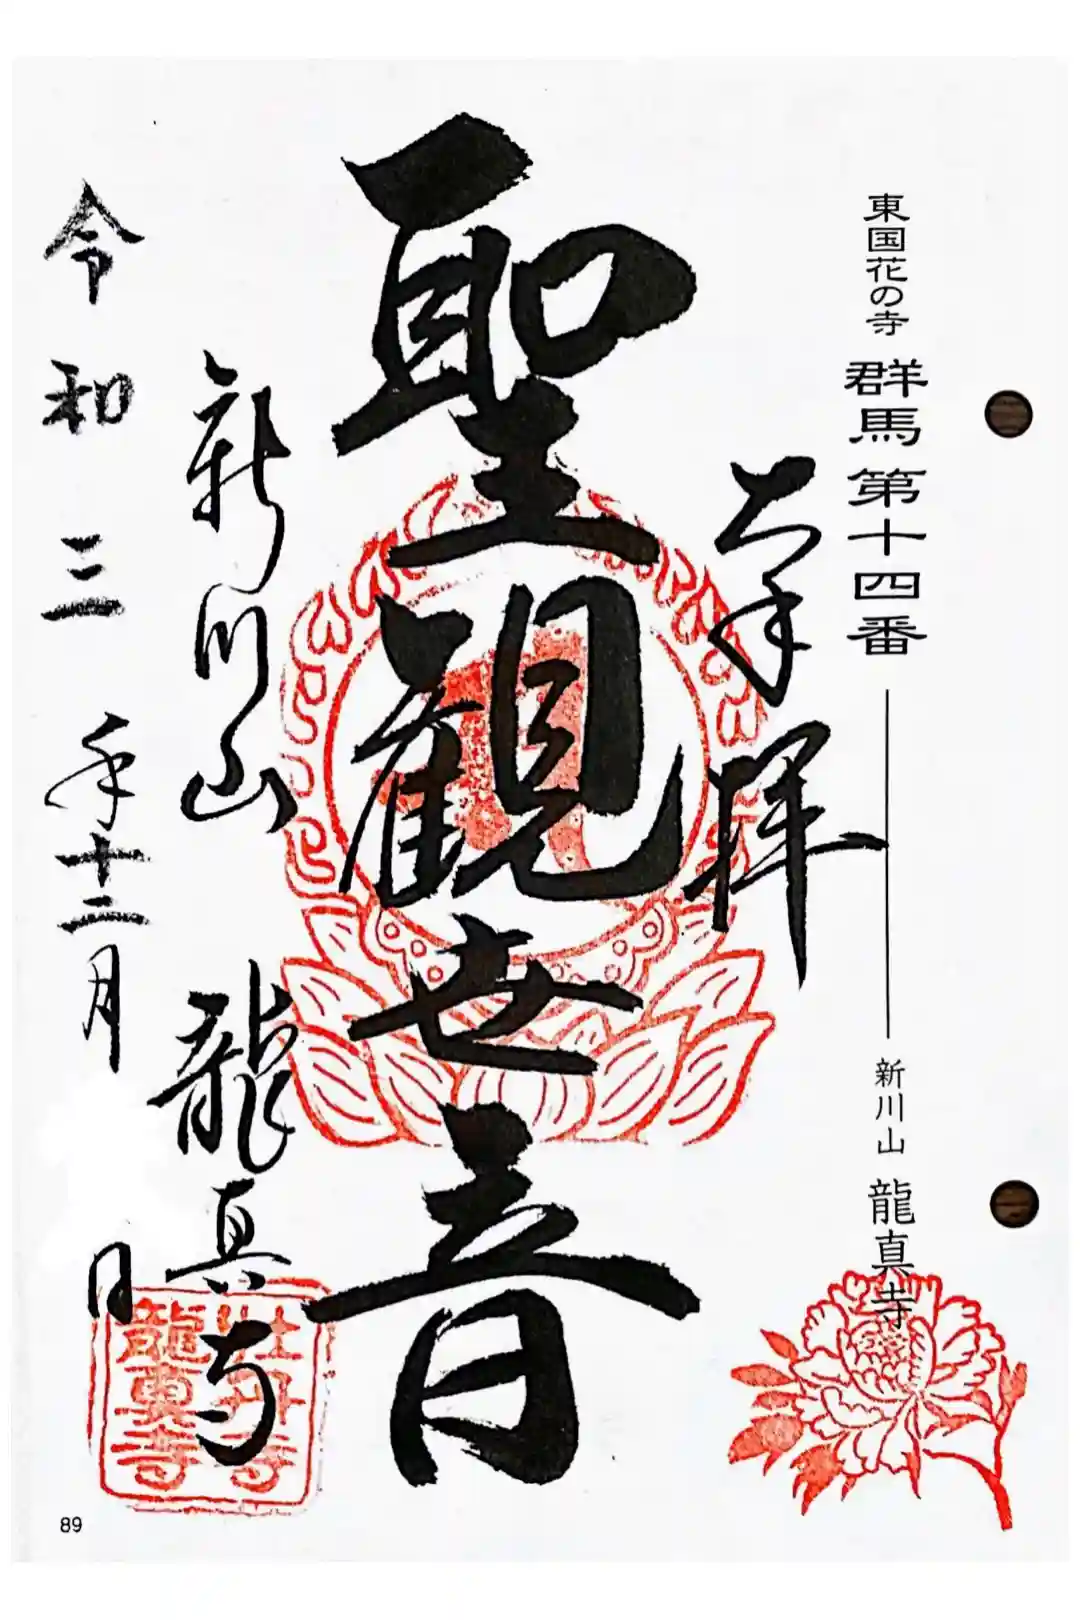 東国花の寺 群馬第十四番 新川山 龍真寺
奉拝
聖観世音
新川山 龍真寺
令和三年十二月 日
牡丹寺
龍真寺
89